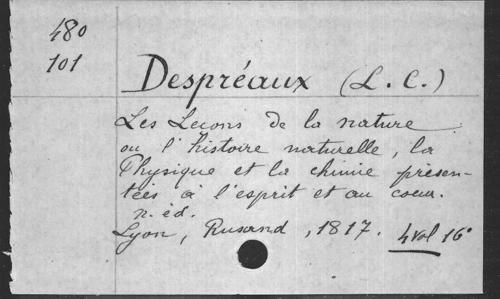 480
101
Despréaux (L. C.)
Les Leçons de la nature
ou l'histoire naturelle, la
Physique et la chimie présen-
tées à l'esprit et au coeur.
n. éd.
Lyon, Rusand, 1817. 4 vol 16°